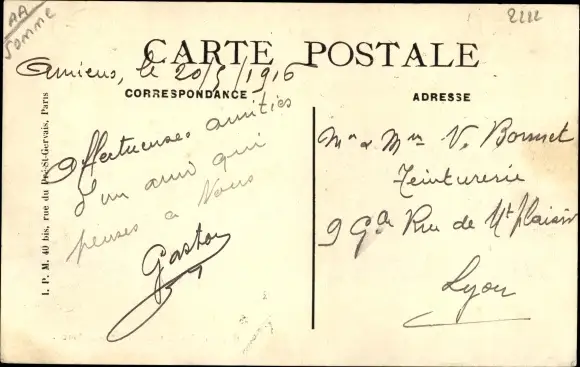 AA
Somme
2222
CARTE POSTALE
Amiens, le 20/5/1916
CORRESPONDANCE
ADRESSE
Affectueuses amitiés
d'un ami qui
penses a Vous
Gaston
Mr & Mme V. Bonnet
Teinturerie
9 Gde Rue de Mt plaisir
Lyon
I. P. M. 40 bis, rue du Pré-St-Gervais, Paris